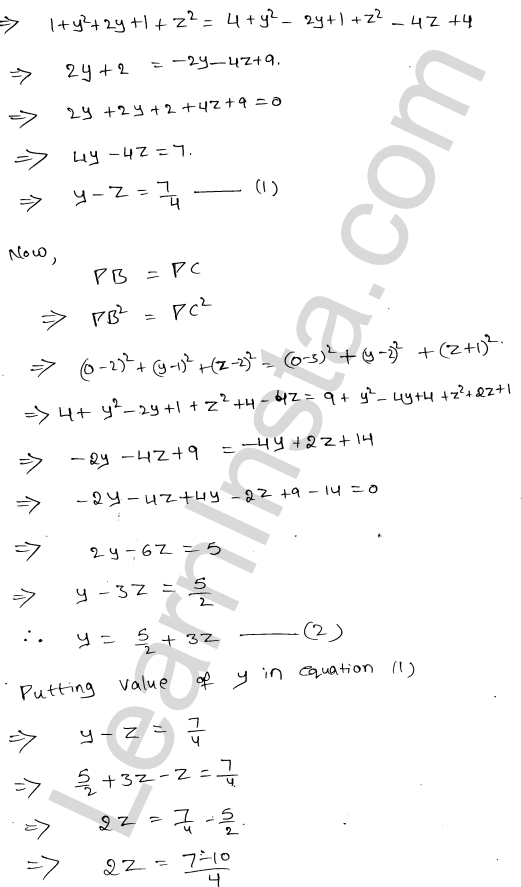 ⇒ 1+y²+2y+1+z² = 4+y²-2y+1+z²-4z+4
⇒ 2y+2 = -2y-4z+9.
⇒ 2y+2y+2+4z+9=0
⇒ 4y-4z=7.
⇒ y-z = 7/4 —— (1)
Now,
PB = PC
⇒ PB² = PC²
⇒ (0-2)²+(y-1)²+(z-2)² = (0-3)²+(y-2)²+(z+1)²
⇒ 4+y²-2y+1+z²+4-4z = 9+y²-4y+4+z²+2z+1
⇒ -2y-4z+9 = -4y+2z+14
⇒ -2y-4z+4y-2z+9-14=0
⇒ 2y-6z=5
⇒ y-3z = 5/2
∴ y = 5/2+3z —— (2)
Putting value of y in equation (1)
⇒ y-z = 7/4
⇒ 5/2+3z-z = 7/4
⇒ 2z = 7/4-5/2
⇒ 2z = 7-10/4
LearnInsta.com